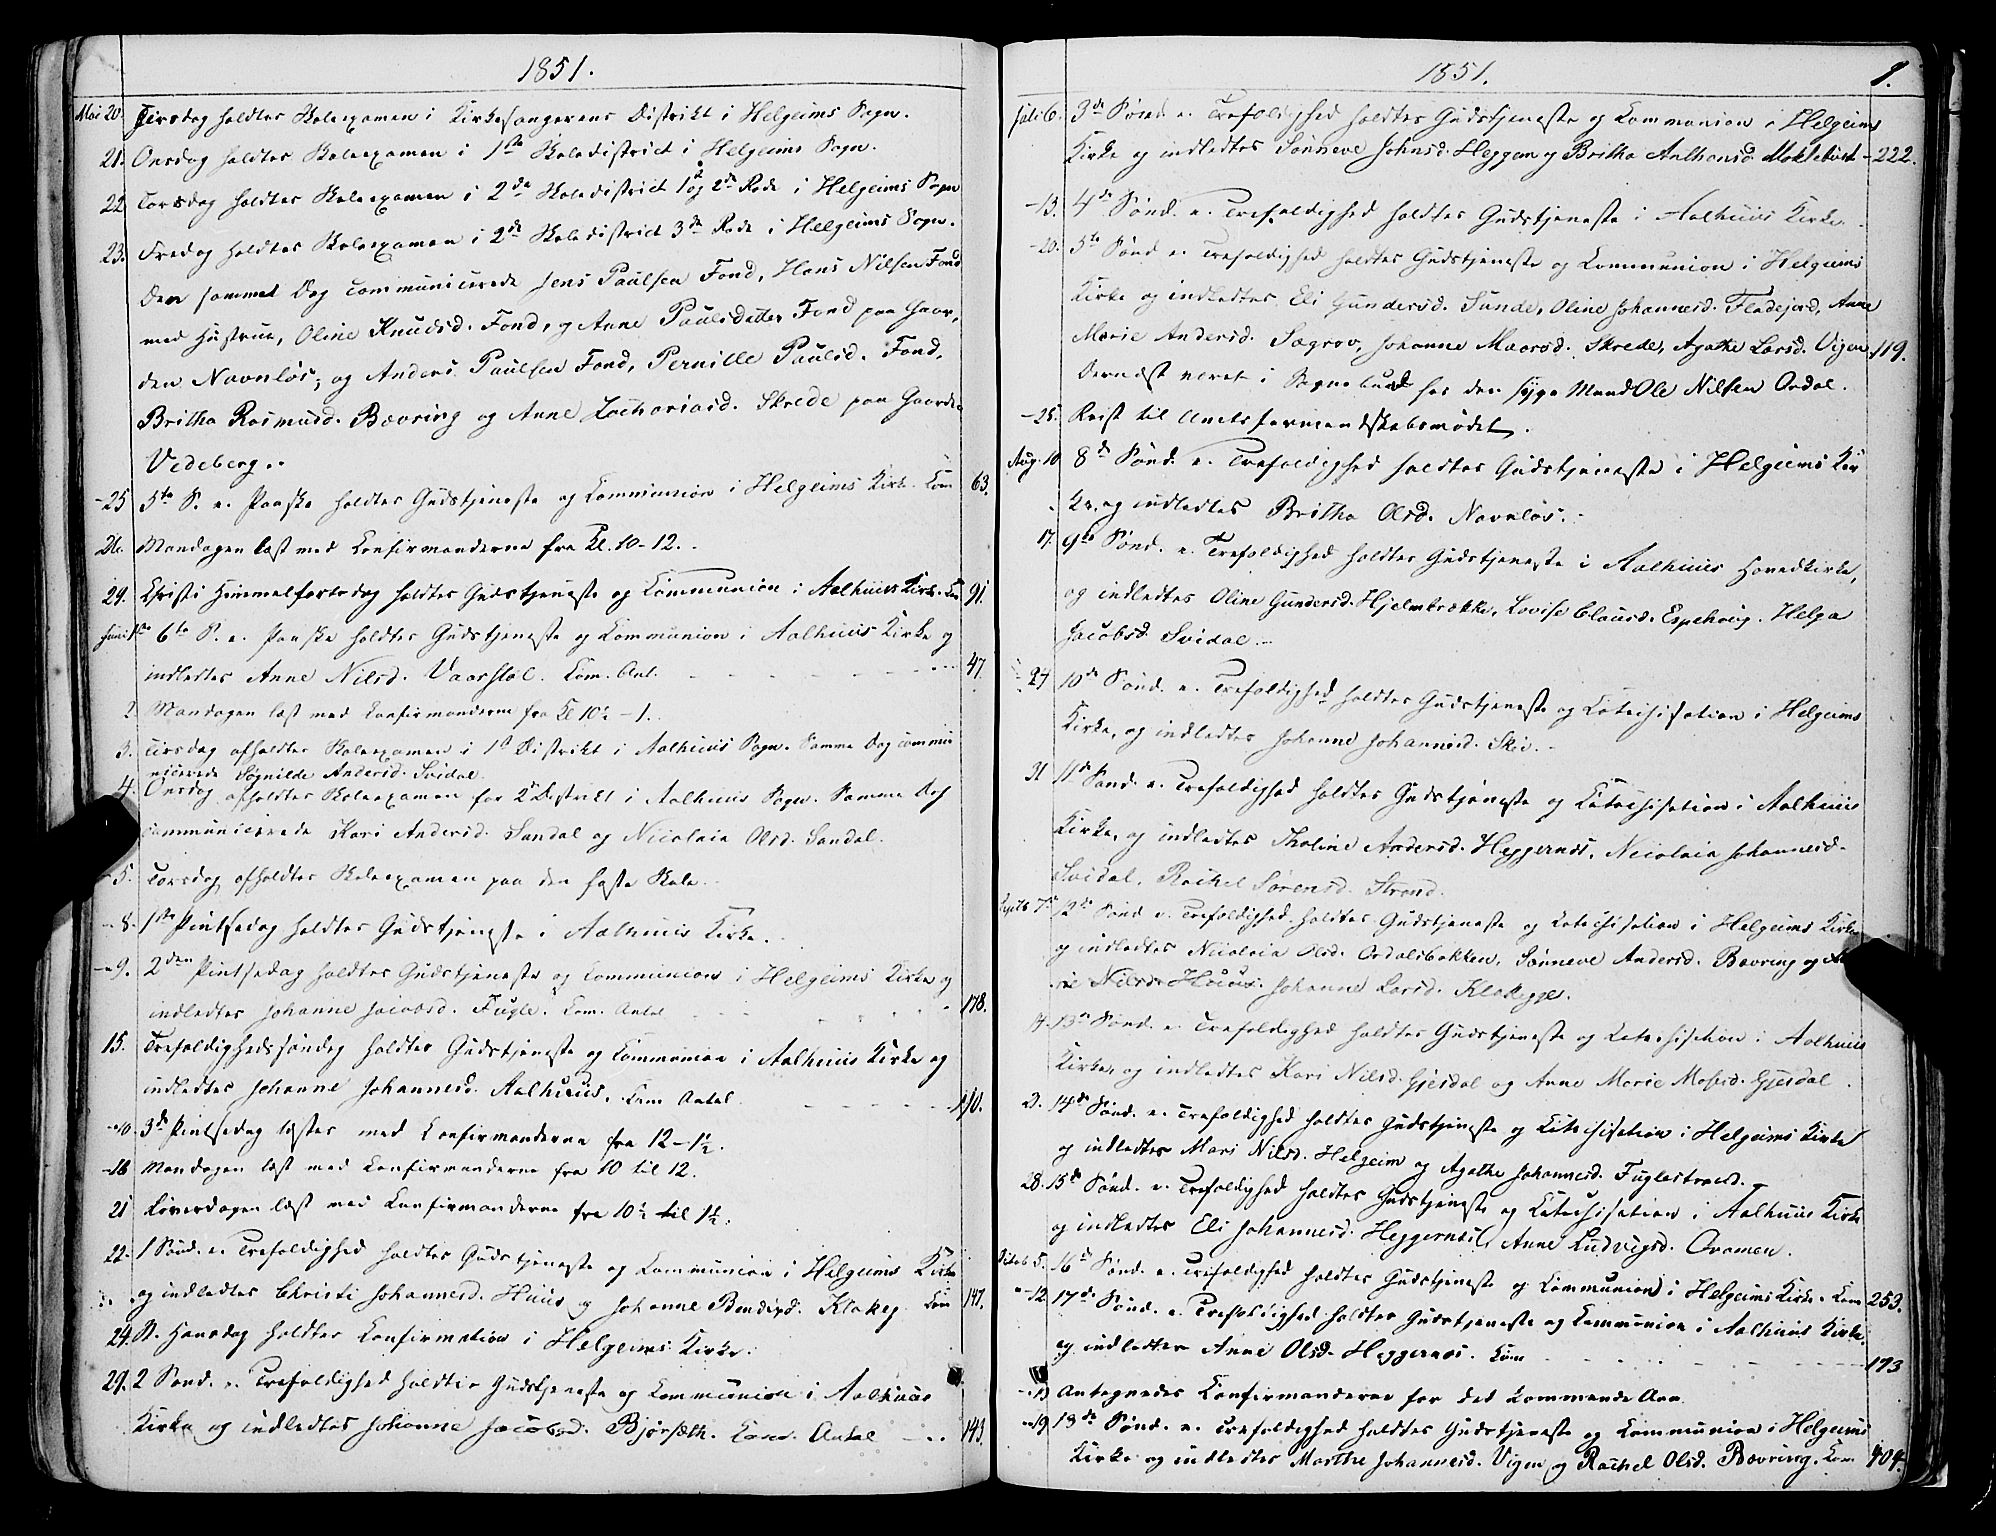 1851.
Mai 20. Tirsdag holdtes Skoleexamen i Kirkesangerens Distrikt i Helgheims Sogn.
21. Onsdag holdtes Skoleexamen i 1ste Skoledistrict i Helgheims Sogn.
22 Torsdag holdtes Skoleexamen i 2de Skoledistrict 1ste og 2de Rode i Helgheims Sogn
23. Fredag holdtes Skoleexamen i 2de Skoledistrict 3de Rode i Helgheims Sogn.
Den sammet Dag communicerede Jens Paulsen Fond, Hans Nilsen Fond
med Hustrue, Oline Knudsd. Fond, og Anne Paulsdatter Fond paa Gaar-
den Navnløs; og Anders Paulsen Fond, Pernille Paulsd. Fond,
Britha Rasmusd. Bævring og Anne Zachariasd. Skrede paa Gaarden
Vedeberg..
-25 5te S. e. Paaske holdtes Gudstjeneste og Communion i Helgheims Kirke. Com 63.
26. Mandagen læst med Confirmanderne fra Kl. 10-12.
29. Christi Himmelfartsdag holdtes Gudstjeneste og Communion i Aalhuus Kirke. Com 91.
Juni 1ste 6te S. e. Paaske holdtes Gudstjeneste og Communion i Aalhuus Kirke og
indledtes Anne Nilsd. Vaarstøl. Com. Ant. 47.
2. Mandagen læst med Confirmanderne fra Kl 10½-1.
3. Tirsdag afholdtes Skoleexamen i 1st Distrikt i Aalhuus Sogn. Samme Dag commu
nicerede Søgnilde Andersd. Svidal.
4. Onsdag afholdtes Skoleexamen for 2d Distrikt i Aalhuus Sogn. Samme Dag
communicerede Kari Andersd. Sandal og Nicolaia Olsd. Sandal.
5. Torsdag afholdtes Skoleexamen paa den faste Skole.
-8. 1ste Pintsedag holdtes Gudstjeneste i Aalhuus Kirke.
-9. 2den Pintsedag holdtes Gudstjeneste og Communion i Helgheims Kirke og
indledtes Johanne Jacobsd. Fugle. Com. Antal 178.
15. Trefoldighedssøndag holdtes Gudstjeneste og Communion i Aalhuus Kirke og
indledtes Johanne Johannesd. Aalhuus. Com. Antal
-10. 3de Pintsedag læstes med Confirmanderne fra 12-1½.
-16 Mandagen læst med Confirmanderne fra 10 til 12.
21 Løverdagen læst med Confirmanderne fra 10½ til 1½.
22. 1 Sønd. e. Trefoldighed holdtes Gudstjeneste og Communion i Helgheims Kirke
og indledtes Christi Johannesd. Huus og Johanne Bendixd. Klakeg. Com 147.
24. St. Hansdag holdtes Confirmation i Helgheims Kirke.
29. 2 Sønd. e. Trefoldighed holdtes Gudstjeneste og Communion i Aalhuus
Kirke og indledtes Johanne Jacobsd. Bjørsæth. Com. Antal 143.
1851. 9.
Juli 6. 3de Sønd. e. Trefoldighed holdtes Gudstjeneste og Communion i Helgheims
Kirke og indledtes Sønneve Johnsd. Heggem og Britha Anthonsd. 222.
-13. 4de Sønd. e. Trefoldighed holdtes Gudstjeneste i Aalhuus Kirke.
-20. 5te Sønd e. Trefoldighed holdtes Gudstjeneste og Communion i Helgheims
Kirke og indledtes Eli Gundersd. Sunde, Oline Johannesd. Fladejord, Anne
Marie Andersd. Sægrov, Johanne Skrede, Agathe Larsd. Vigen. 119.
Dernæst været i Sognebud hos den syge Mand Ole Nilsen Ordal.
-25. Reist til Amtsformandskabsmødet.
Aug. 10 8de Sønd. e. Trefoldighed holdtes Gudstjeneste i Helgheims Kir
ke, og indledtes Britha Olsd. Navnløs.
17. 9de Sønd. e. Trefoldighed holdtes Gudstjeneste i Aalhuus Hovedkirke,
og indledtes Oline Gundersd. Hjelmbrække, Lovise Clausd. Espehoug. Helga
Jacobsd. Svidal.
24 10de Sønd. e. Trefoldighed holdtes Gudstjeneste og Catechisation i Helgheims
Kirke, og indledtes Johanne Johannesd. Skei.
31 11te Sønd. e. Trefoldighed holdtes Gudstjeneste og Catechisation i Aalhuus
Kirke, og indledtes Tholine Andersd. Heggernes, Nicolaia Johannesd.
Svidal, Rachel Sørensd. Strand.
Septb 7de 12te Sønd e. Trefoldighed holdtes Gudstjeneste og Catechisation i Helgheims Kirke
og indledtes Nicolaia Olsd. Ordalsbakken, Sønneve Andersd. Bævring og
Nilsd. Huus. Johanne Larsd. Klakegge.
14. 13de Sønd. e. Trefoldighed holdtes Gudstjeneste og Catechisation i Aalhuus
Kirke, og indledtes Kari Nilsd. Gjesdal og Anne Marie Mosesd. Gjesdal.
21. 14de Sønd. e. Trefoldighed holdtes Gudstjeneste og Catechisation i Helgheims Kirke
og indledtes Mari Nilsd. Helgeim og Agathe Johannesd. Fuglestræd.
28. 15de Sønd. e. Trefoldighed holdtes Gudstjeneste og Catechisation i Aalhuus Kirke
og indledtes Eli Johannesd. Heggernæs, Anne Ludvigsd. Øramen.
Octob 5. 16de Sønd. e. Trefoldighed holdtes Gudstjeneste og Communion i Helgheims Kirke. Com 253.
-12 17de Sønd. e. Trefoldighed holdtes Gudstjeneste og Communion i Aalhuus Kirke.
og indledtes Anne Olsd. Heggernæs. Com 173
-13 Antegnedes Confirmanderne for det kommende Aar.
-19 18de Sønd. e. Trefoldighed holdtes Gudstjeneste og Communion i Helgheims
Kirke og indledtes Marthe Johannesd. Vigen og Rachel Olsd. Bævring. Com 404.